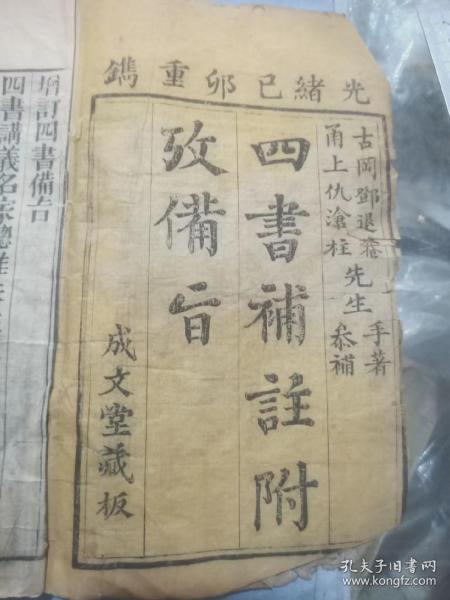 光緒己卯重鐫
古岡鄧退菴先生手著
甬上仇滄柱先生叅補
四書補註附
攷備旨
成文堂藏板
增訂四書備旨
四書講義名家總
孔夫子旧书网
www.kongfz.com